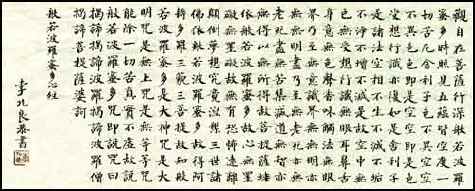 觀自在菩薩行深般若波羅
蜜多時照見五蘊皆空度一
切苦厄舍利子色不異空空
不異色色即是空空即是色
受想行識亦復如是舍利子
是諸法空相不生不滅不垢
不淨不增不減是故空中無
色無受想行識無眼耳鼻舌
身意無色聲香味觸法無眼
界乃至無意識界無無明亦
無無明盡乃至無老死亦無
老死盡無苦集滅道無智亦
無得以無所得故菩提薩埵
依般若波羅蜜多故心無罣
礙無罣礙故無有恐怖遠離
顛倒夢想究竟涅槃三世諸
佛依般若波羅蜜多故得阿
耨多羅三藐三菩提故知般
若波羅蜜多是大神咒是大
明咒是無上咒是無等等咒
能除一切苦真實不虛故說
般若波羅蜜多咒即說咒曰
揭諦揭諦波羅揭諦波羅僧
揭諦菩提薩婆訶
般若波羅蜜多心經
李良恭書